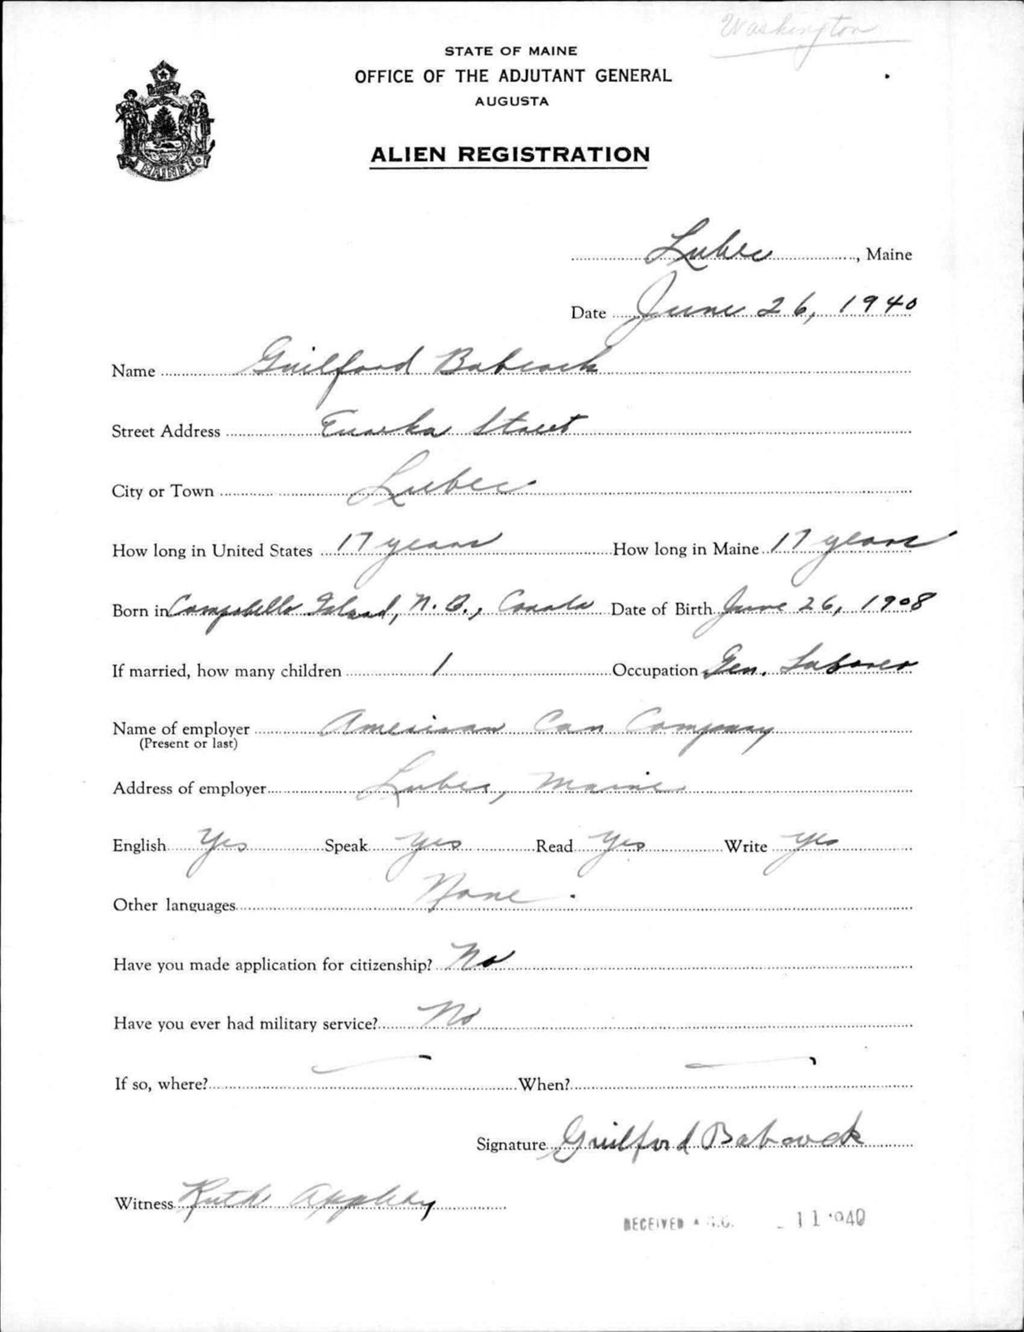 Washington
STATE OF MAINE
OFFICE OF THE ADJUTANT GENERAL
AUGUSTA
ALIEN REGISTRATION
MAINE
Lubec, Maine
Date June 26, 1940
Name Guilford Babcock
Street Address Eureka Street
City or Town Lubec
How long in United States 17 years How long in Maine 17 years
Born in Campobello Island, N.B., Canada Date of Birth June 26, 1908
If married, how many children 1 Occupation Gen. Laborer
Name of employer American Can Company
(Present or last)
Address of employer Lubec, Maine
English Yes Speak yes Read Yes Write yes
Other languages None.
Have you made application for citizenship? No
Have you ever had military service? No
If so, where? — When? —
Signature Guilford Babcock
Witness Ruth Appleby
RECEIVED A.G.O. 11 1940